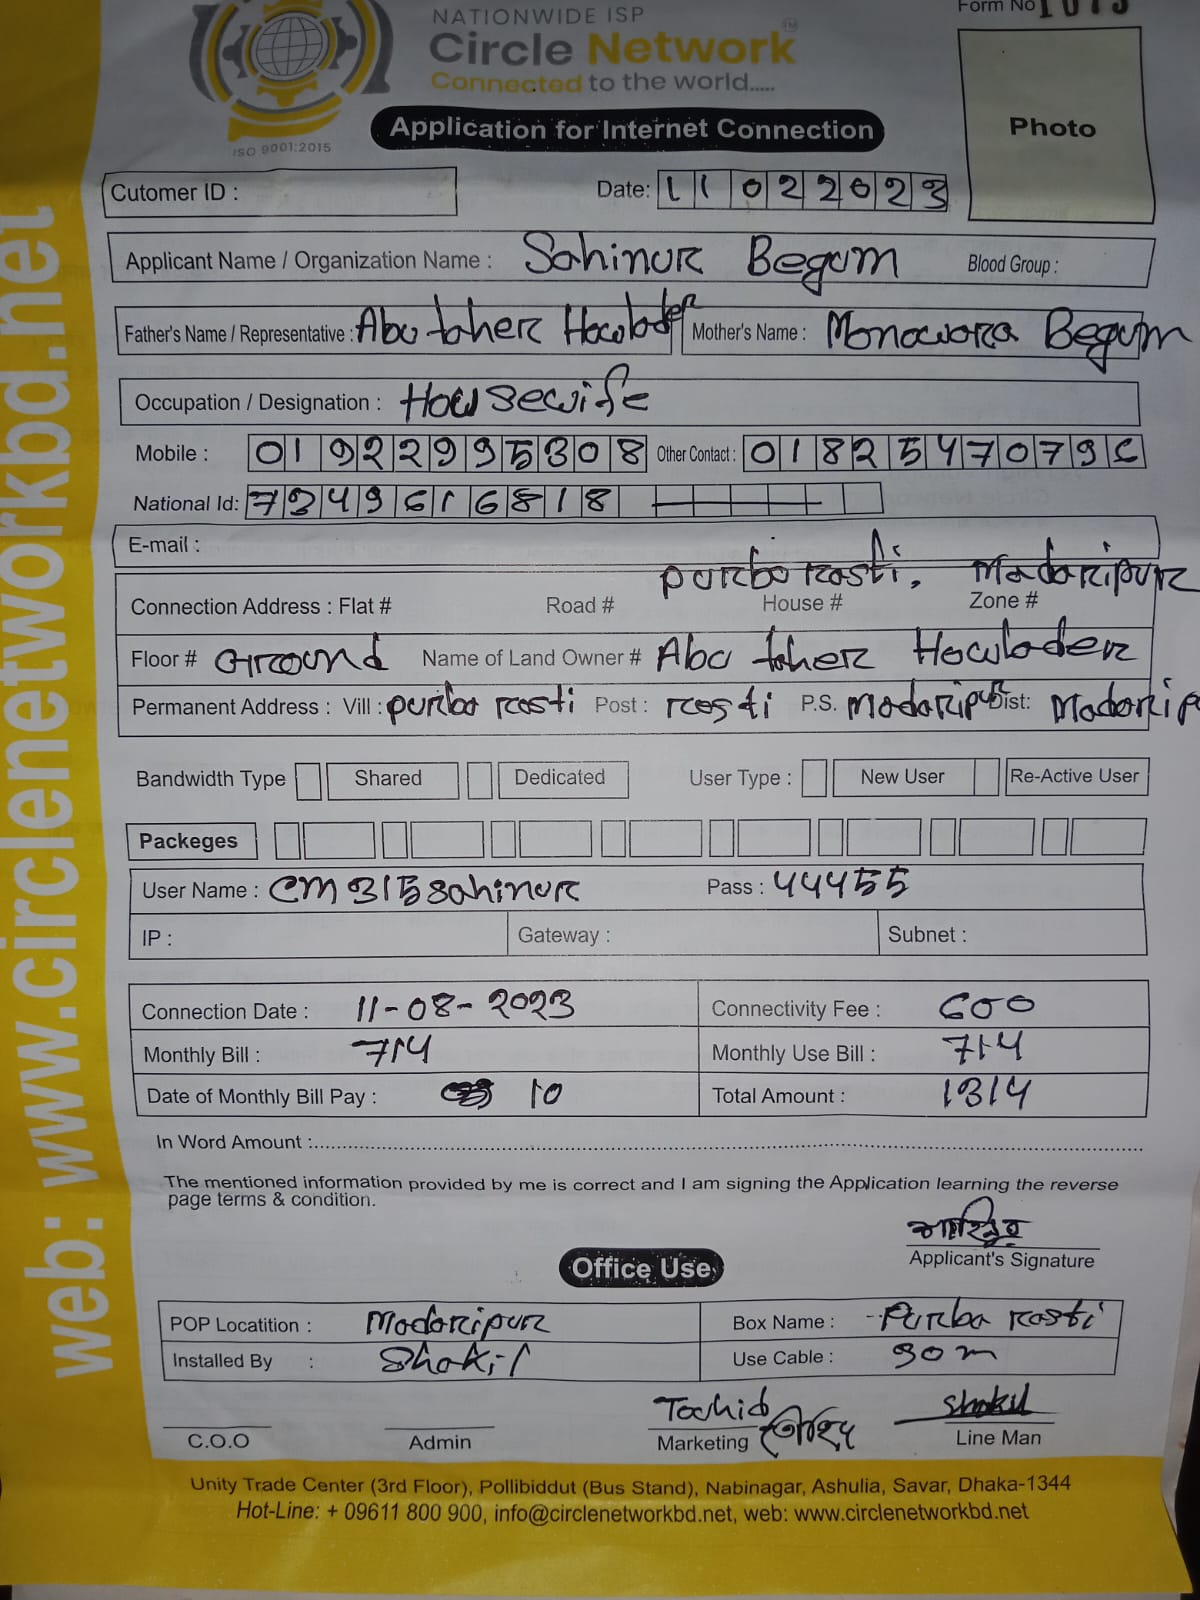 NATIONWIDE ISP
Form No 1073
Circle Network TM
Connected to the world.....
ISO 9001:2015
Application for Internet Connection
Photo
Cutomer ID :
Date: 11022023
Applicant Name / Organization Name : Sahinur Begum Blood Group :
Father's Name / Representative : Abu taher Howlader Mother's Name : Monowora Begum
Occupation / Designation : Housewife
Mobile : 01922995308 Other Contact : 01825470796
National Id: 7349616818
E-mail :
purbo rasti, Madaripur
Connection Address : Flat # Road # House # Zone #
Floor # Ground Name of Land Owner # Abu taher Howlader
Permanent Address : Vill : purbo rasti Post : rasti P.S. Madaripur Dist: Madarip
Bandwidth Type Shared Dedicated User Type : New User Re-Active User
Packeges
User Name : CM315sahinur Pass : 44455
IP : Gateway : Subnet :
Connection Date : 11-08-2023 Connectivity Fee : 600
Monthly Bill : 714 Monthly Use Bill : 714
Date of Monthly Bill Pay : 10 Total Amount : 1314
In Word Amount :
The mentioned information provided by me is correct and I am signing the Application learning the reverse
page terms & condition.
Applicant's Signature
Office Use
POP Locatition : Madaripur Box Name : Purba rasti
Installed By : Shakil Use Cable : 90m
Tochid Shakil
C.O.O Admin Marketing Line Man
Unity Trade Center (3rd Floor), Pollibiddut (Bus Stand), Nabinagar, Ashulia, Savar, Dhaka-1344
Hot-Line: + 09611 800 900, info@circlenetworkbd.net, web: www.circlenetworkbd.net
web: www.circlenetworkbd.net